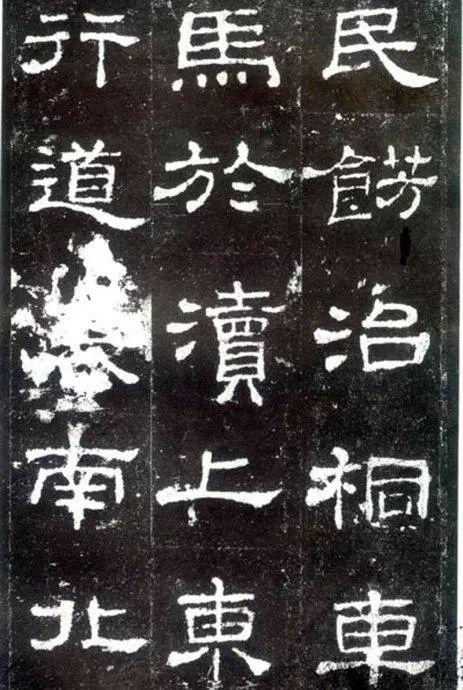 民餝治桐車
馬於瀆上東
行道南北